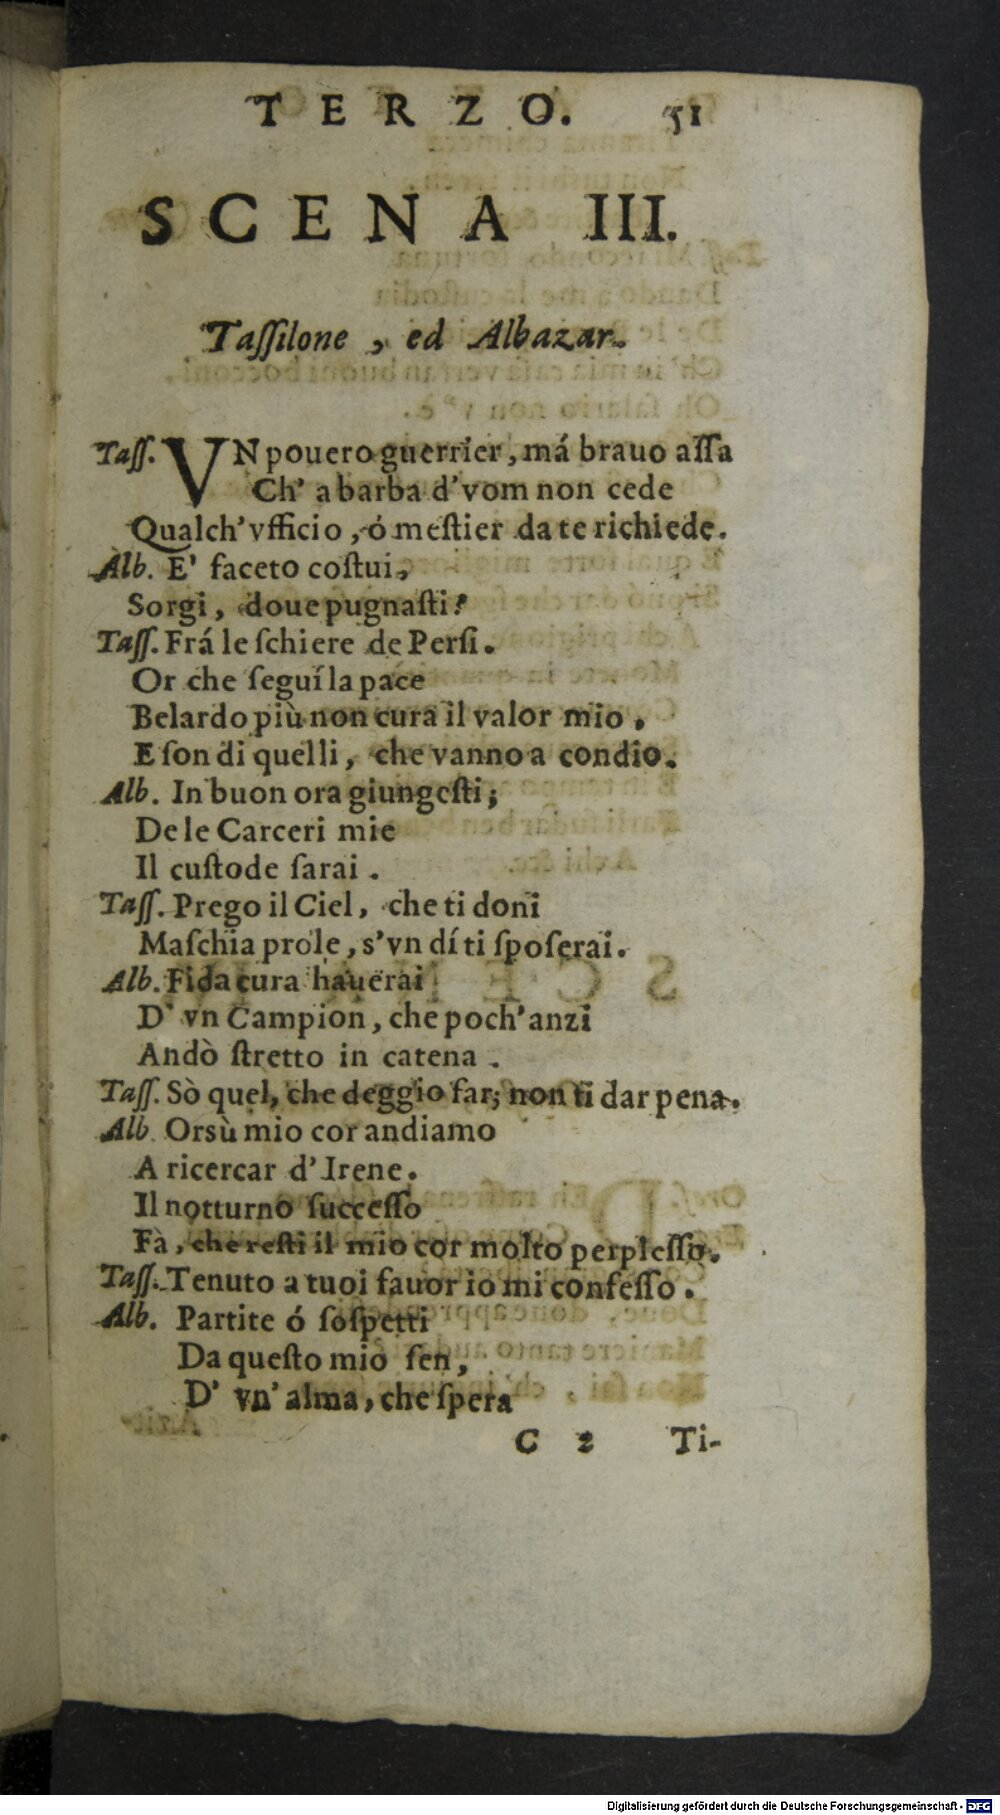 TERZO. 51
SCENA III.
Taſſilone, ed Albazar.
Taſſ. VN pouero guerrier, má brauo aſſa
Ch' a barba d'vom non cede
Qualch'vfficio, ó meſtier da te richiede.
Alb. E' faceto coſtui,
Sorgi, doue pugnaſti?
Taſſ. Frá le ſchiere de Perſi.
Or che ſeguí la pace
Belardo più non cura il valor mio,
E ſon di quelli, che vanno a condio.
Alb. In buon ora giungeſti;
De le Carceri mie
Il cuſtode ſarai.
Taſſ. Prego il Ciel, che ti doni
Maſchia prole, s'vn dí ti ſpoſerai.
Alb. Fida cura hauerai
D' vn Campion, che poch'anzi
Andò ſtretto in catena.
Taſſ. Sò quel, che deggio far; non ti dar pena.
Alb. Orsù mio cor andiamo
A ricercar d'Irene.
Il notturno ſucceſſo
Fà, che reſti il mio cor molto perpleſſo.
Taſſ. Tenuto a tuoi fauor io mi confeſſo.
Alb. Partite ó ſoſpetti
Da queſto mio ſen,
D' vn' alma, che ſpera
C 2 Ti-
Digitalisierung gefördert durch die Deutsche Forschungsgemeinschaft - DFG